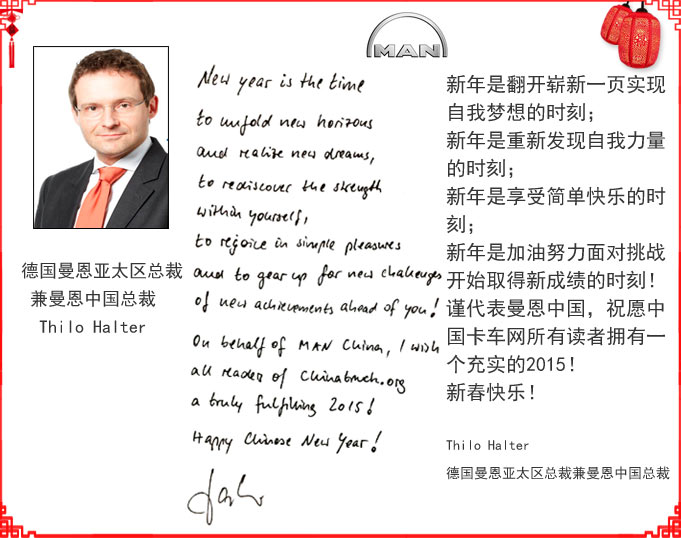 MAN
New year is the time
to unfold new horizons
and realize new dreams,
to rediscover the strength
within yourself,
to rejoice in simple pleasures
and to gear up for new challenges
of new achievements ahead of you!
On behalf of MAN China, I wish
all reader of Chinatruck.org
a truly fulfilling 2015!
Happy Chinese New Year!
德国曼恩亚太区总裁
兼曼恩中国总裁
Thilo Halter
新年是翻开崭新一页实现
自我梦想的时刻；
新年是重新发现自我力量
的时刻；
新年是享受简单快乐的时
刻；
新年是加油努力面对挑战
开始取得新成绩的时刻！
谨代表曼恩中国，祝愿中
国卡车网所有读者拥有一
个充实的2015！
新春快乐！
Thilo Halter
德国曼恩亚太区总裁兼曼恩中国总裁